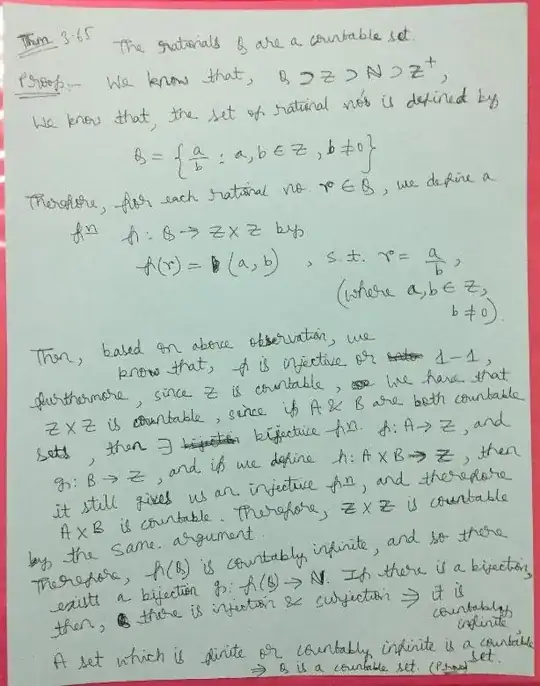 Thm 3.65 The rationals Q are a countable set.
Proof:- We know that, Q ⊃ Z ⊃ N ⊃ Z⁺,
We know that, the set of rational no's is defined by
Q = { a/b : a, b ∈ Z, b ≠ 0 }
Therefore, for each rational no. r ∈ Q, we define a
fⁿ f: Q → Z × Z by
f(r) = (a, b) , s.t. r = a/b,
(where a, b ∈ Z,
b ≠ 0).
Then, based on above observation, we
know that, f is injective or 1-1,
furthermore, since Z is countable, we have that
Z × Z is countable, since if A & B are both countable
sets, then ∃ bijective fⁿ. f: A → Z, and
g: B → Z, and if we define h: A × B → Z, then
it still gives us an injective fⁿ, and therefore
A × B is countable. Therefore, Z × Z is countable
by the same argument.
Therefore, f(Q) is countably infinite, and so there
exists a bijection g: f(Q) → N. If there is a bijection,
then, there is injection & surjection ⇒ it is
countably
infinite
A set which is finite or countably infinite is a countable
set.
⇒ Q is a countable set. (Proved)